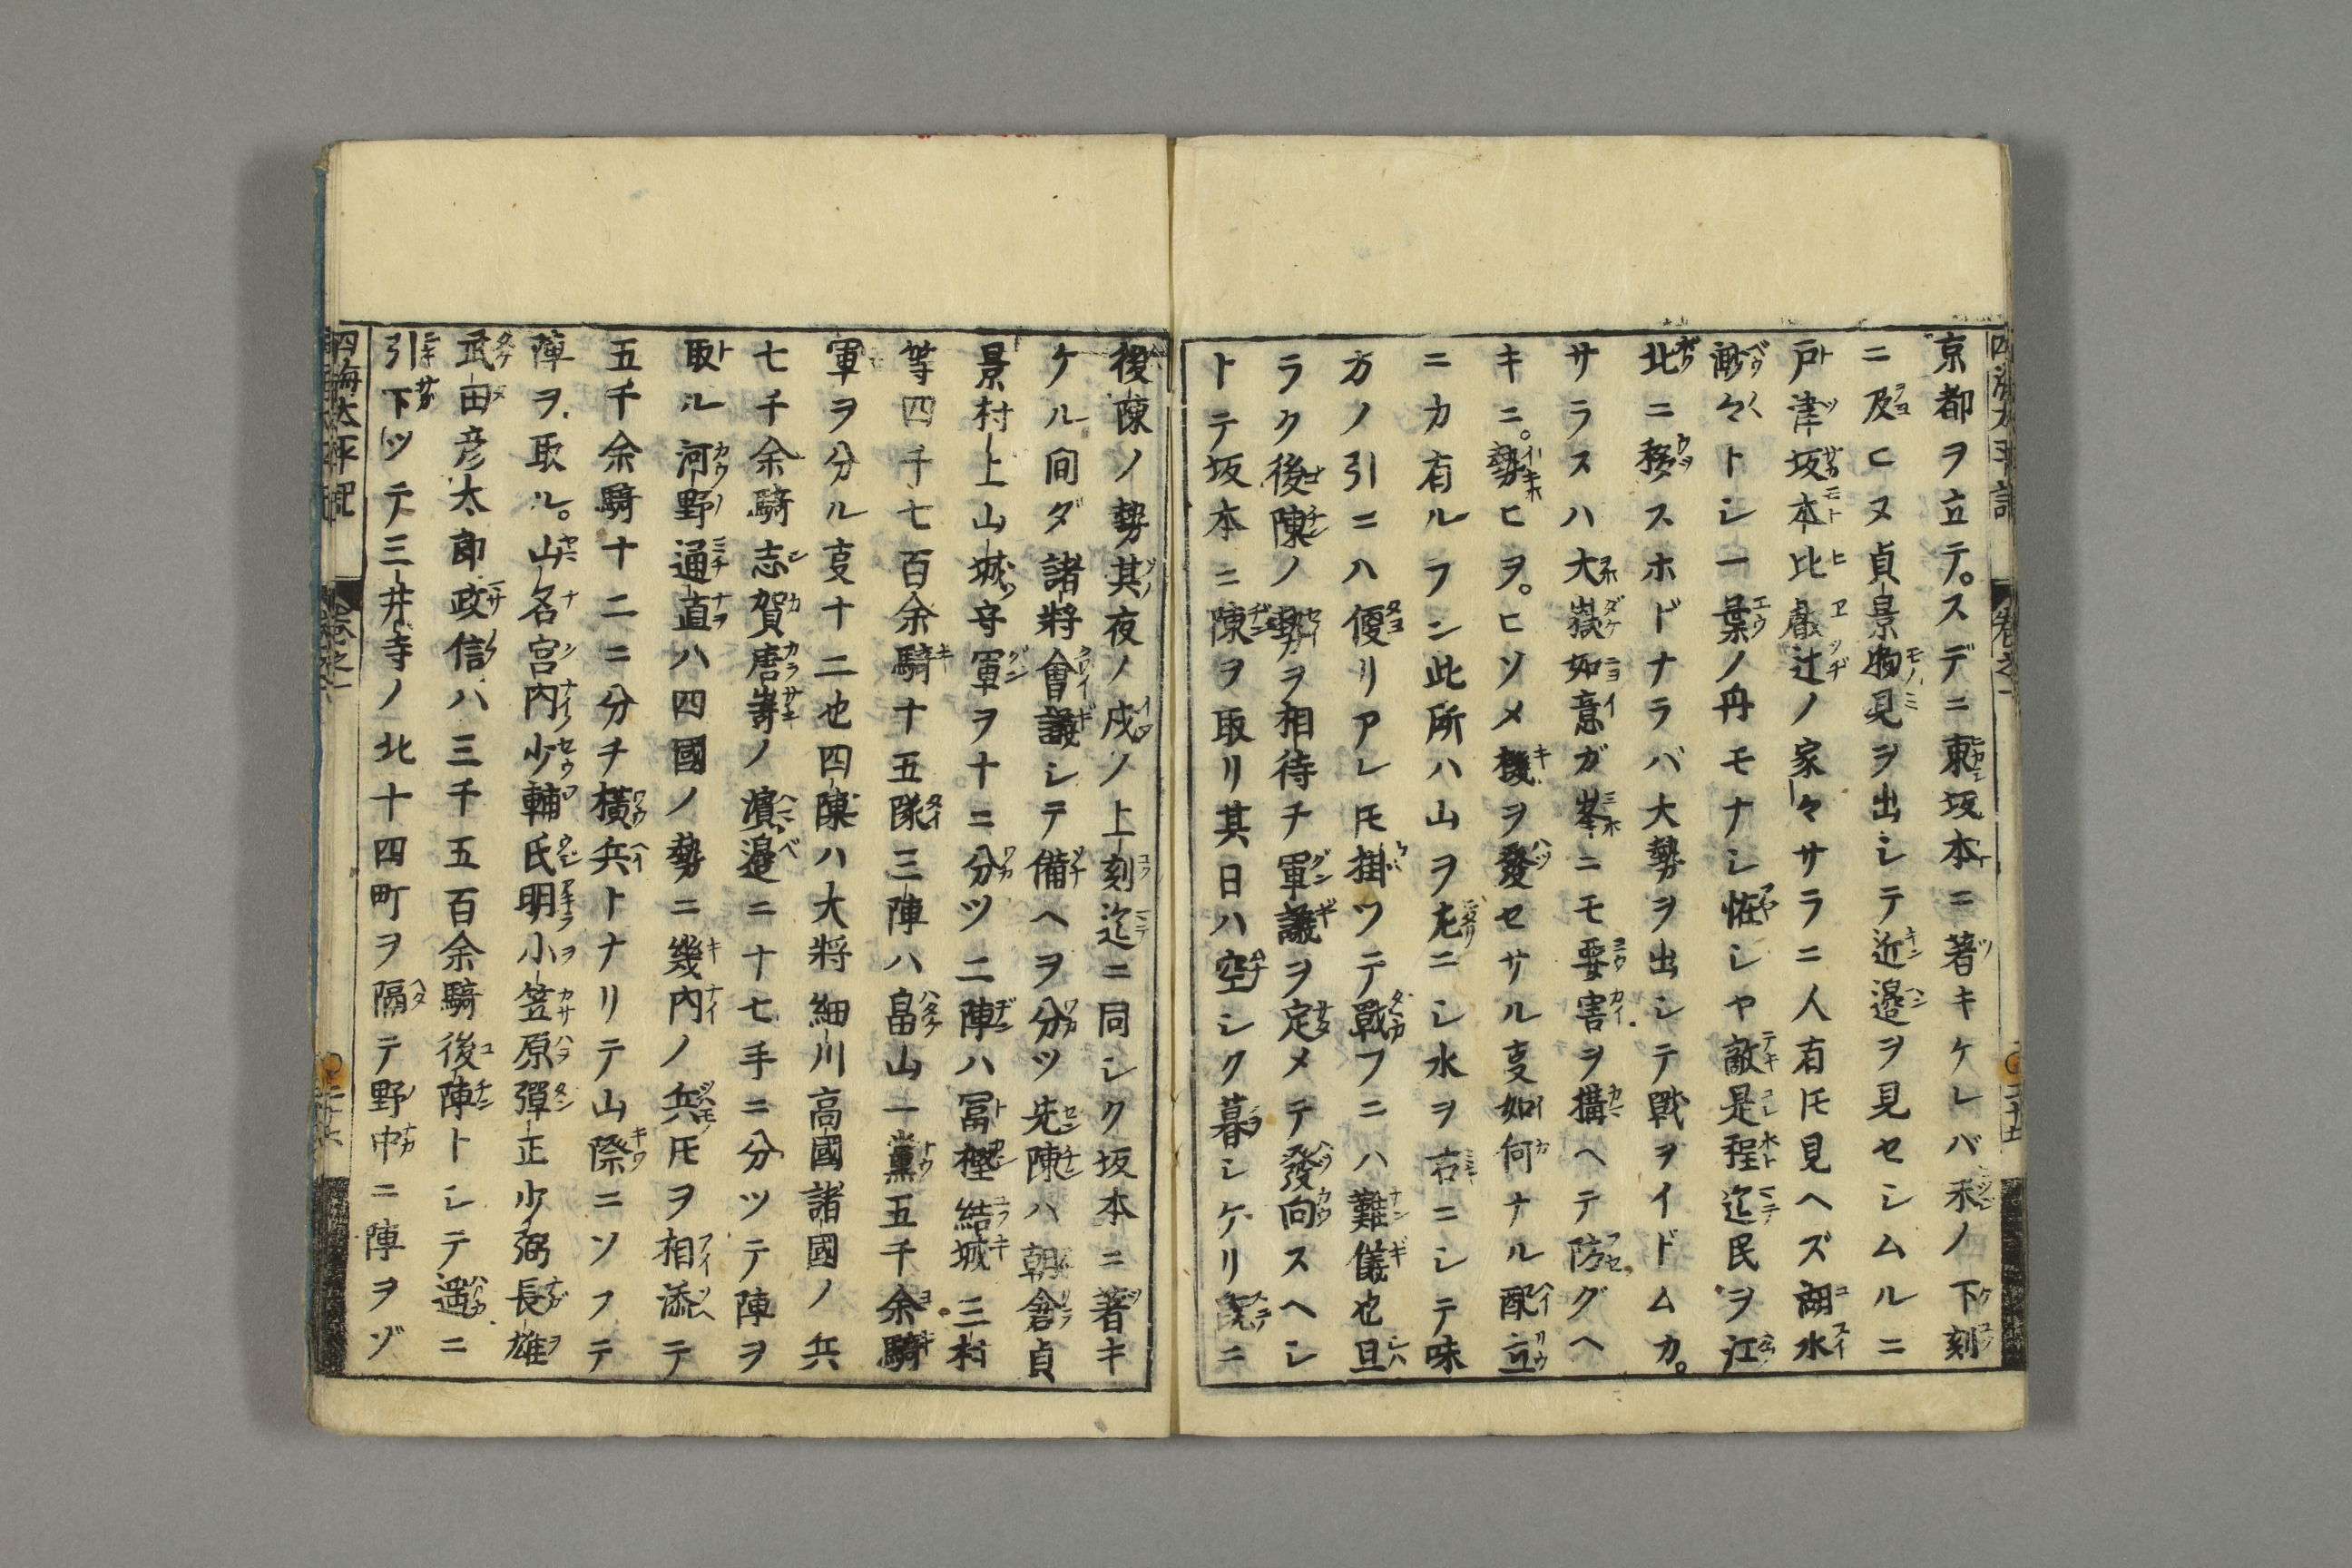 京都ヲ立テ。スデニ東坂本ニ著キケレバ禾ノ下刻
ニ及ヒヌ貞景物見ヲ出シテ近邉ヲ見セシムルニ
戸津坂本比叡辻ノ家々サラニ人有圧見ヘズ湖水
渺々トシ一葉ノ舟モナシ恠シヤ敵是程迄民ヲ江
北ニ移スホドナラバ大勢ヲ出シテ戰ヲイドムカ。
サラスハ大嶽如意ガ峯ニモ要害ヲ構ヘテ防グヘ
キニ。勢ヒヲ。ヒソメ機ヲ發セサル叓如何ナル配立
ニカ有ルラン此所ハ山ヲ左ニシ水ヲ右ニシテ味
方ノ引ニハ便リアレ圧掛ツテ戰フニハ難儀也且
ラク後陳ノ勢ヲ相待チ軍議ヲ定メテ發向スヘシ
トテ坂本ニ陳ヲ取リ其日ハ空シク暮シケリ既ニ
後陳ノ勢其夜ノ戍ノ上刻迄ニ同シク坂本ニ著キ
ケル間ダ諸將會議シテ備ヘヲ分ツ先陳ハ朝倉貞
景村上山城守軍ヲ十ニ分ツ二陣ハ冨樫結城三村
等四千七百余騎十五隊三陣ハ畠山一黨五千余騎
軍ヲ分ル叓十二也四陳ハ大將細川高國諸國ノ兵
七千余騎志賀唐㟢ノ濵邉ニ十七手ニ分ツテ陣ヲ
取ル河野通直ハ四國ノ勢ニ幾内ノ兵圧ヲ相添テ
五千余騎十二ニ分チ横兵トナリテ山際ニソフテ
陣ヲ取ル。山名宮内少輔氏明小笠原彈正少弼長雄
武田彦太郎政信ハ三千五百余騎後陣トシテ遥ニ
引下ツテ三井寺ノ北十四町ヲ隔テ野中ニ陣ヲゾ
四海太平記 卷之一